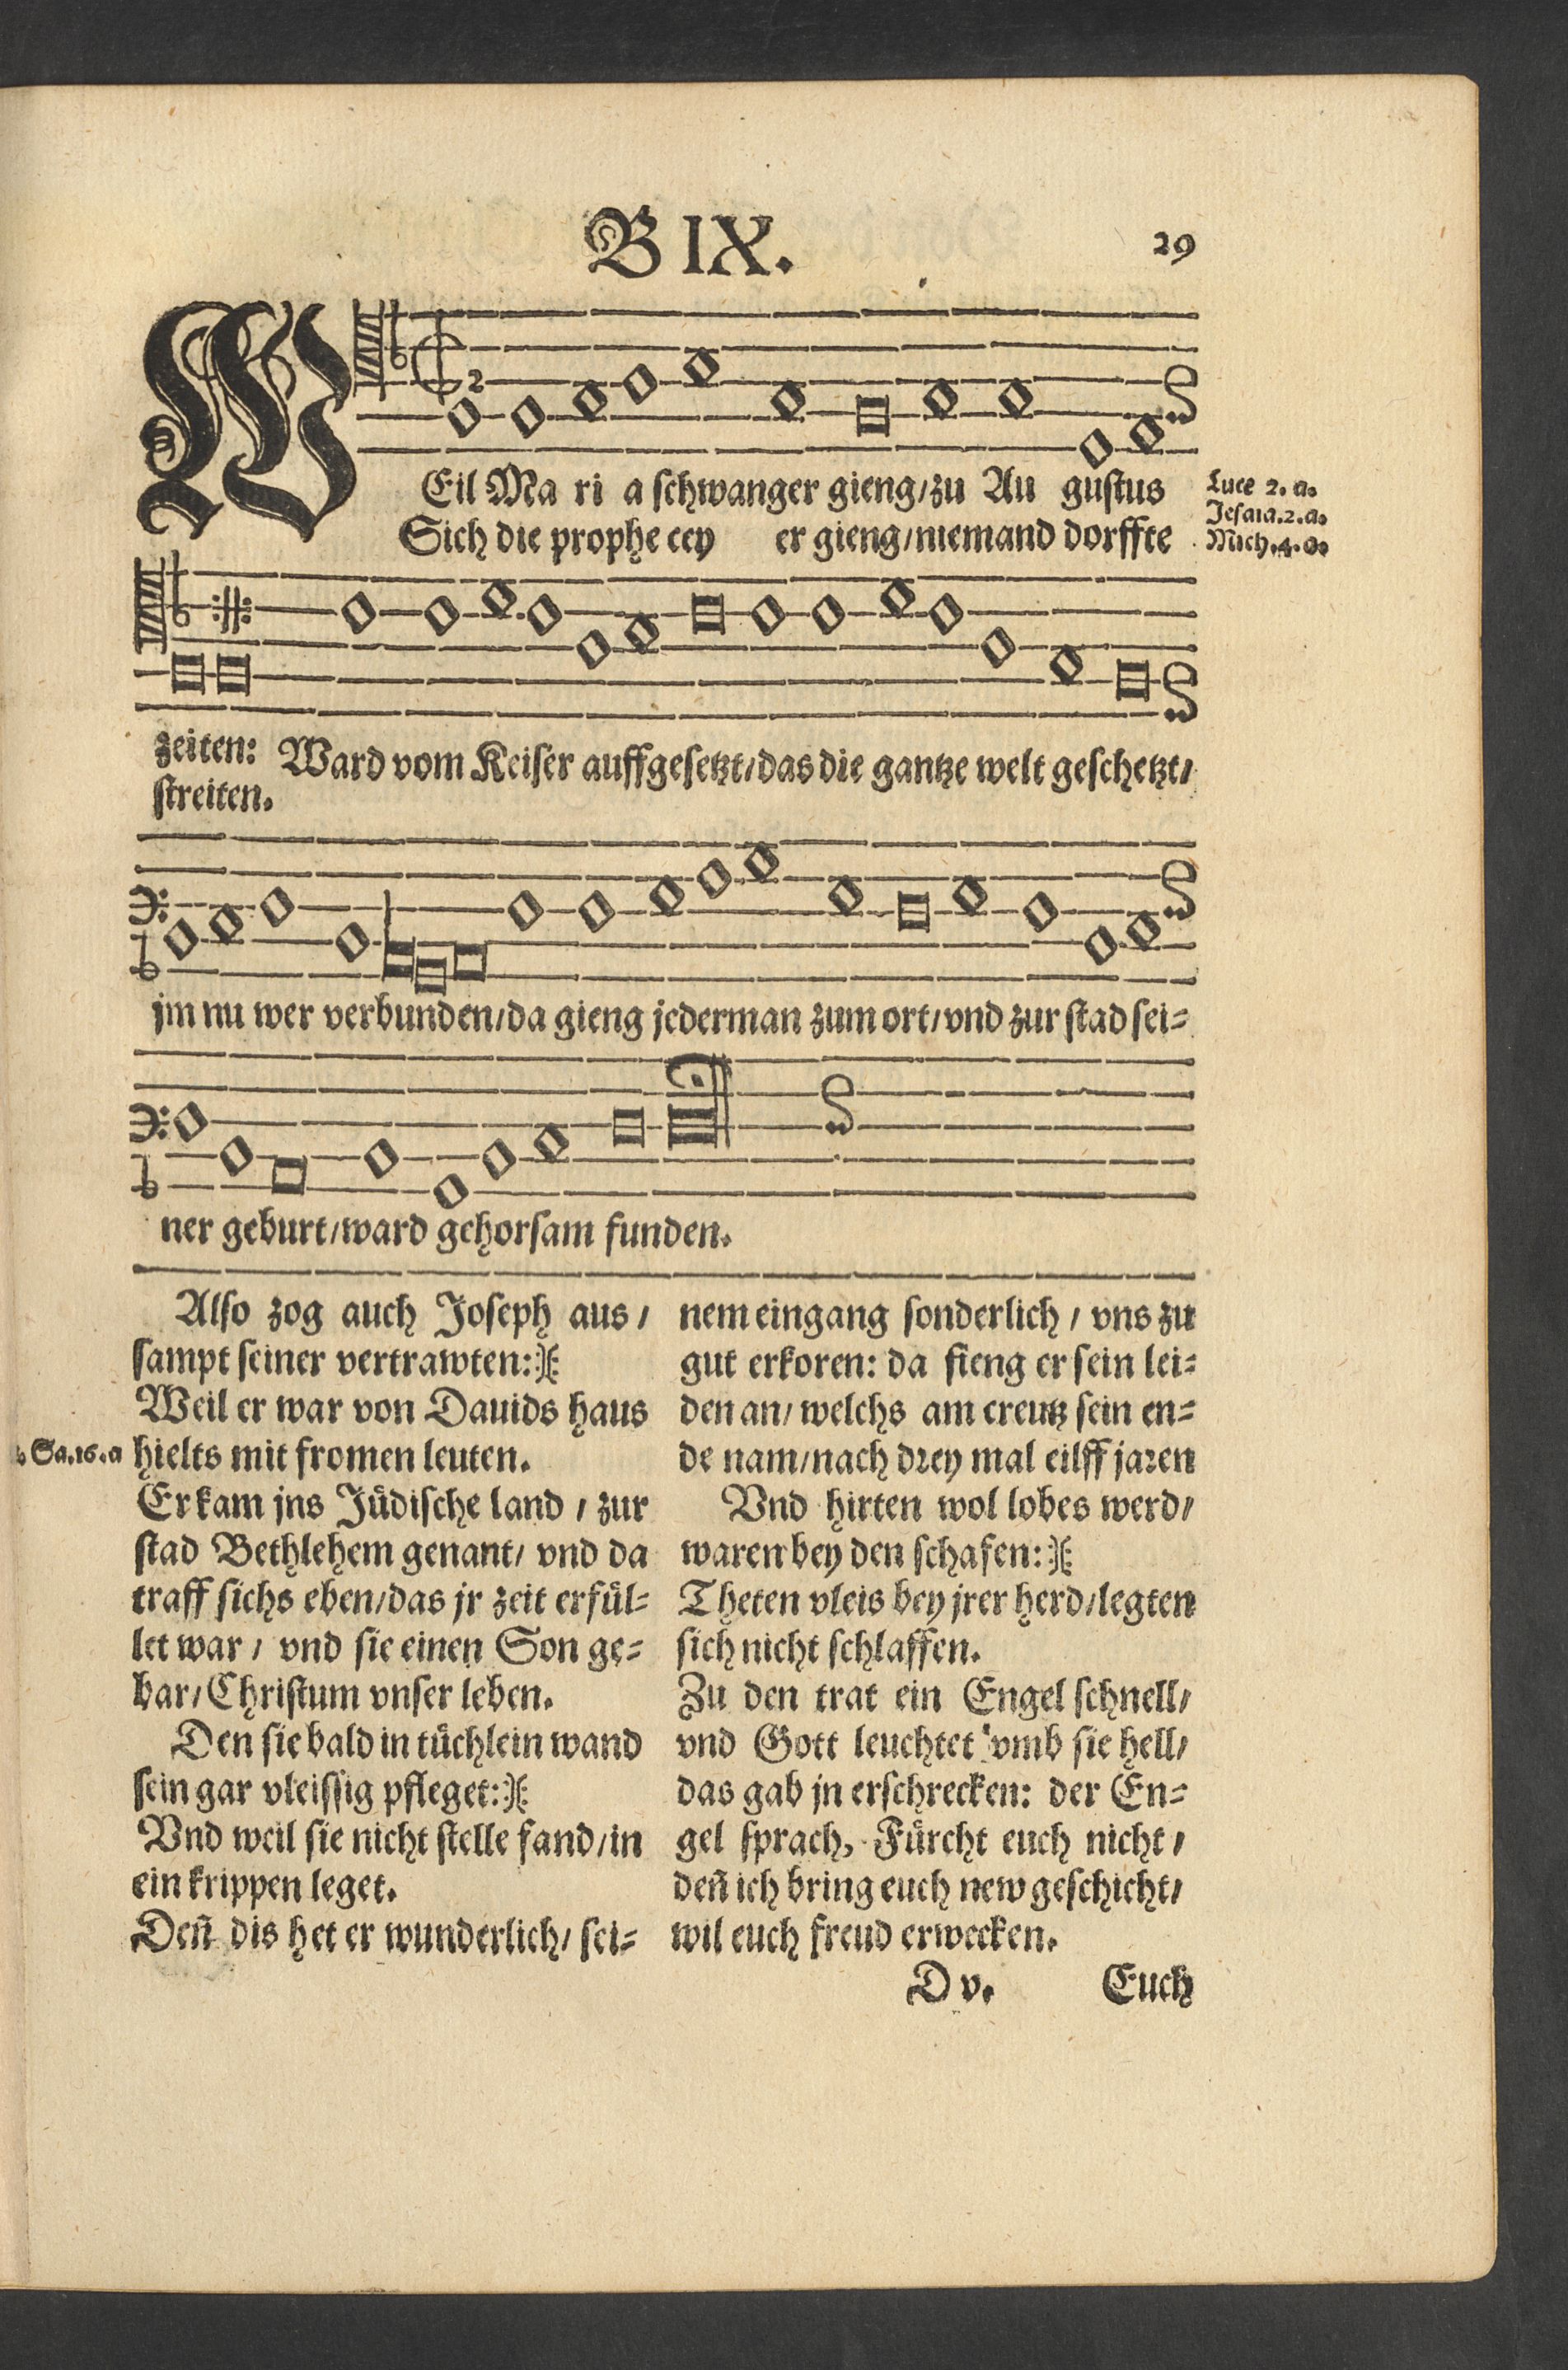 B IX.
29
WEil Ma ri a schwanger gieng/zu Au gustus
Sich die prophe cey er gieng/niemand dorffte
Luce 2. a.
Jesaia.2.a.
Mich.4.a.
zeiten: Ward vom Keiser auffgesetzt/das die gantze welt geschetzt/
streiten.
jm nu wer verbunden/da gieng jederman zum ort/vnd zur stad sei-
ner geburt/ward gehorsam funden.
Also zog auch Joseph aus /
sampt seiner vertrawten:
Weil er war von Dauids haus
Sa.16.a
hielts mit fromen leuten.
Er kam jns Jüdische land / zur
stad Bethlehem genant/ vnd da
traff sichs eben/das jr zeit erfül-
let war / vnd sie einen Son ge-
bar/Christum vnser leben.
Den sie bald in tüchlein wand
sein gar vleissig pfleget:
Vnd weil sie nicht stelle fand/in
ein krippen leget.
Deñ dis het er wunderlich/ sei-
nem eingang sonderlich / vns zu
gut erkoren: da fieng er sein lei-
den an/ welchs am creutz sein en-
de nam/nach drey mal eilff jaren
Vnd hirten wol lobes werd/
waren bey den schafen:
Theten vleis bey jrer herd/legten
sich nicht schlaffen.
Zu den trat ein Engel schnell/
vnd Gott leuchtet vmb sie hell/
das gab jn erschrecken: der En-
gel sprach, Fürcht euch nicht /
deñ ich bring euch new geschicht/
wil euch freud erwecken.
D v. Euch